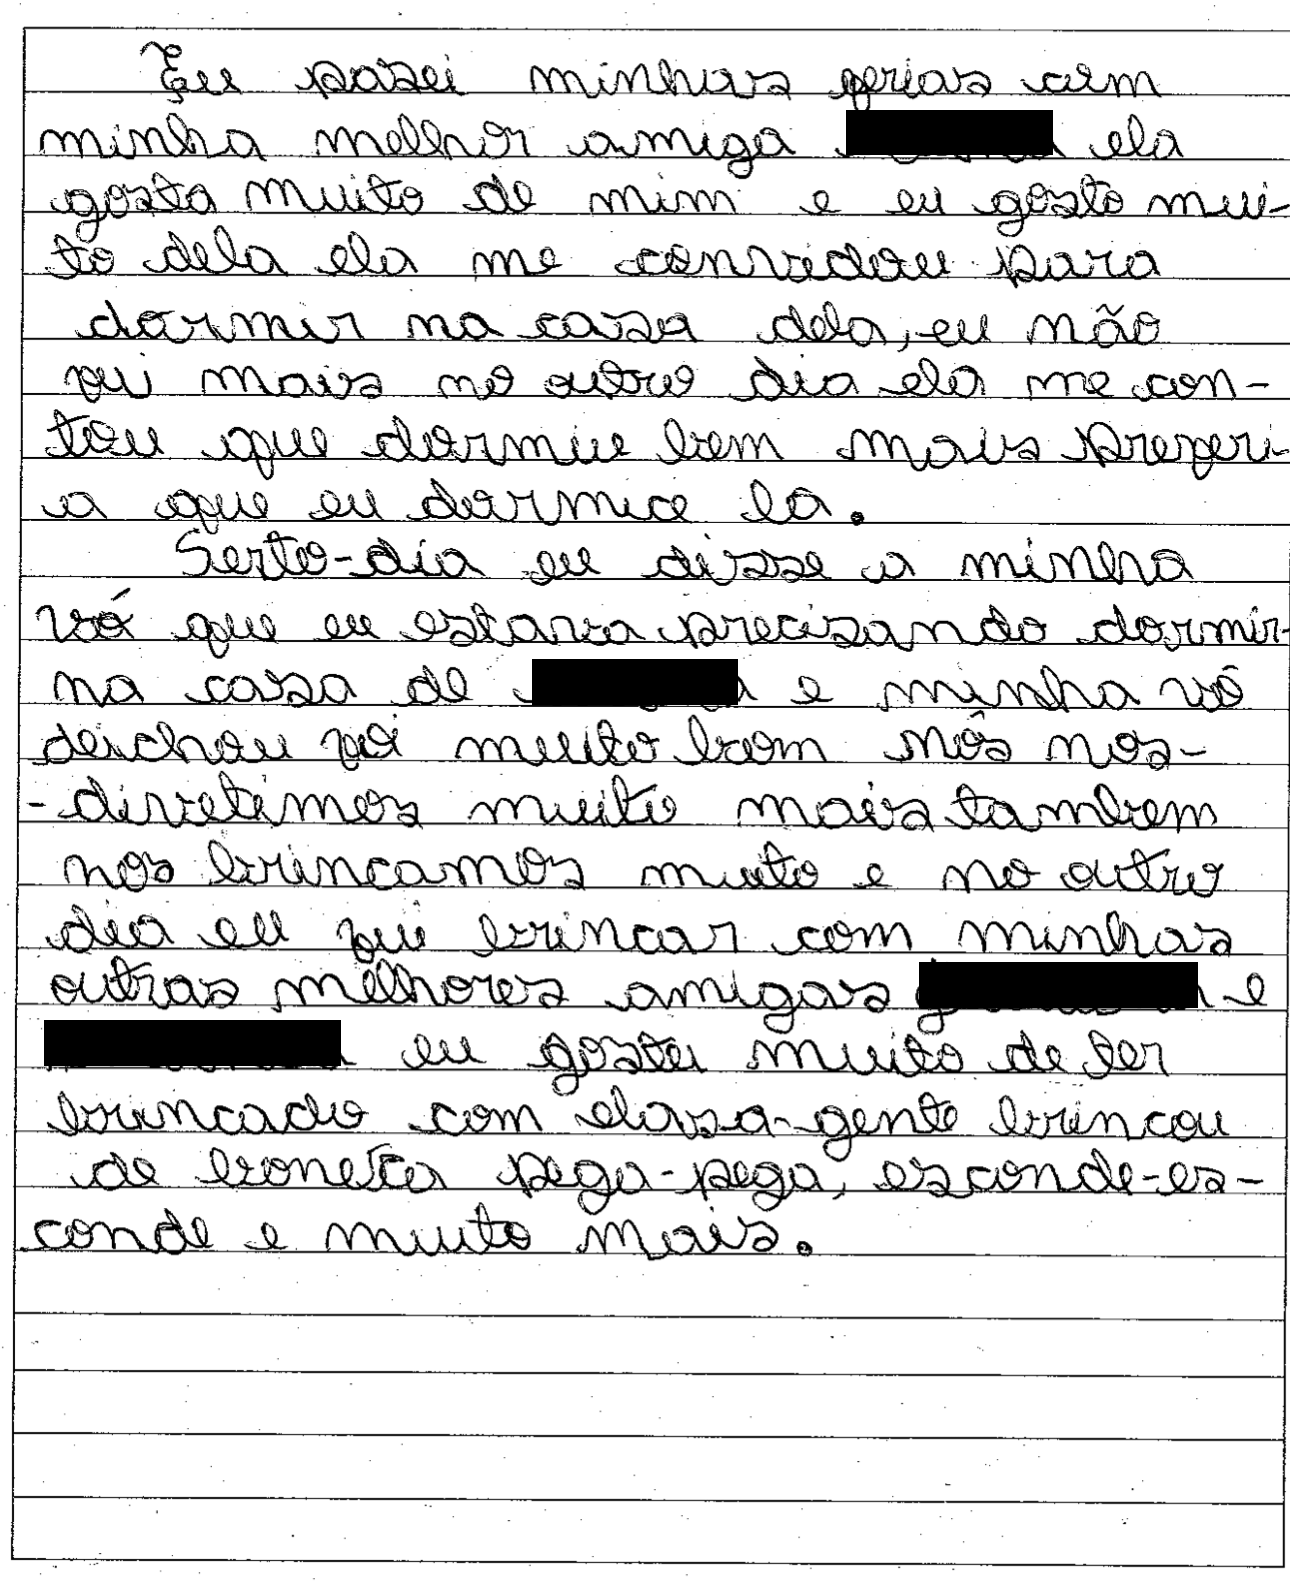 Eu pasei minhas ferias com
minha melhor amiga ela
gosta muito de mim e eu gosto mui-
to dela ela me convidou para
dormir na casa dela, eu não
fui mais no outro dia ela me con-
tou que dormiu bem mais preferi-
a que eu dormice la.
Serto-dia eu disse a minha
vó que eu estava precisando dormir
na casa de e minha vó
deichou foi muito bom nôs nos-
-divetimos muito mais tambem
nos brincamos muito e no outro
dia eu fui brincar com minhas
outras melhores amigas e
eu gostei muito de ter
brincado com elas a-gente brincou
de boneca pega-pega, esconde-es-
conde e muito mais.